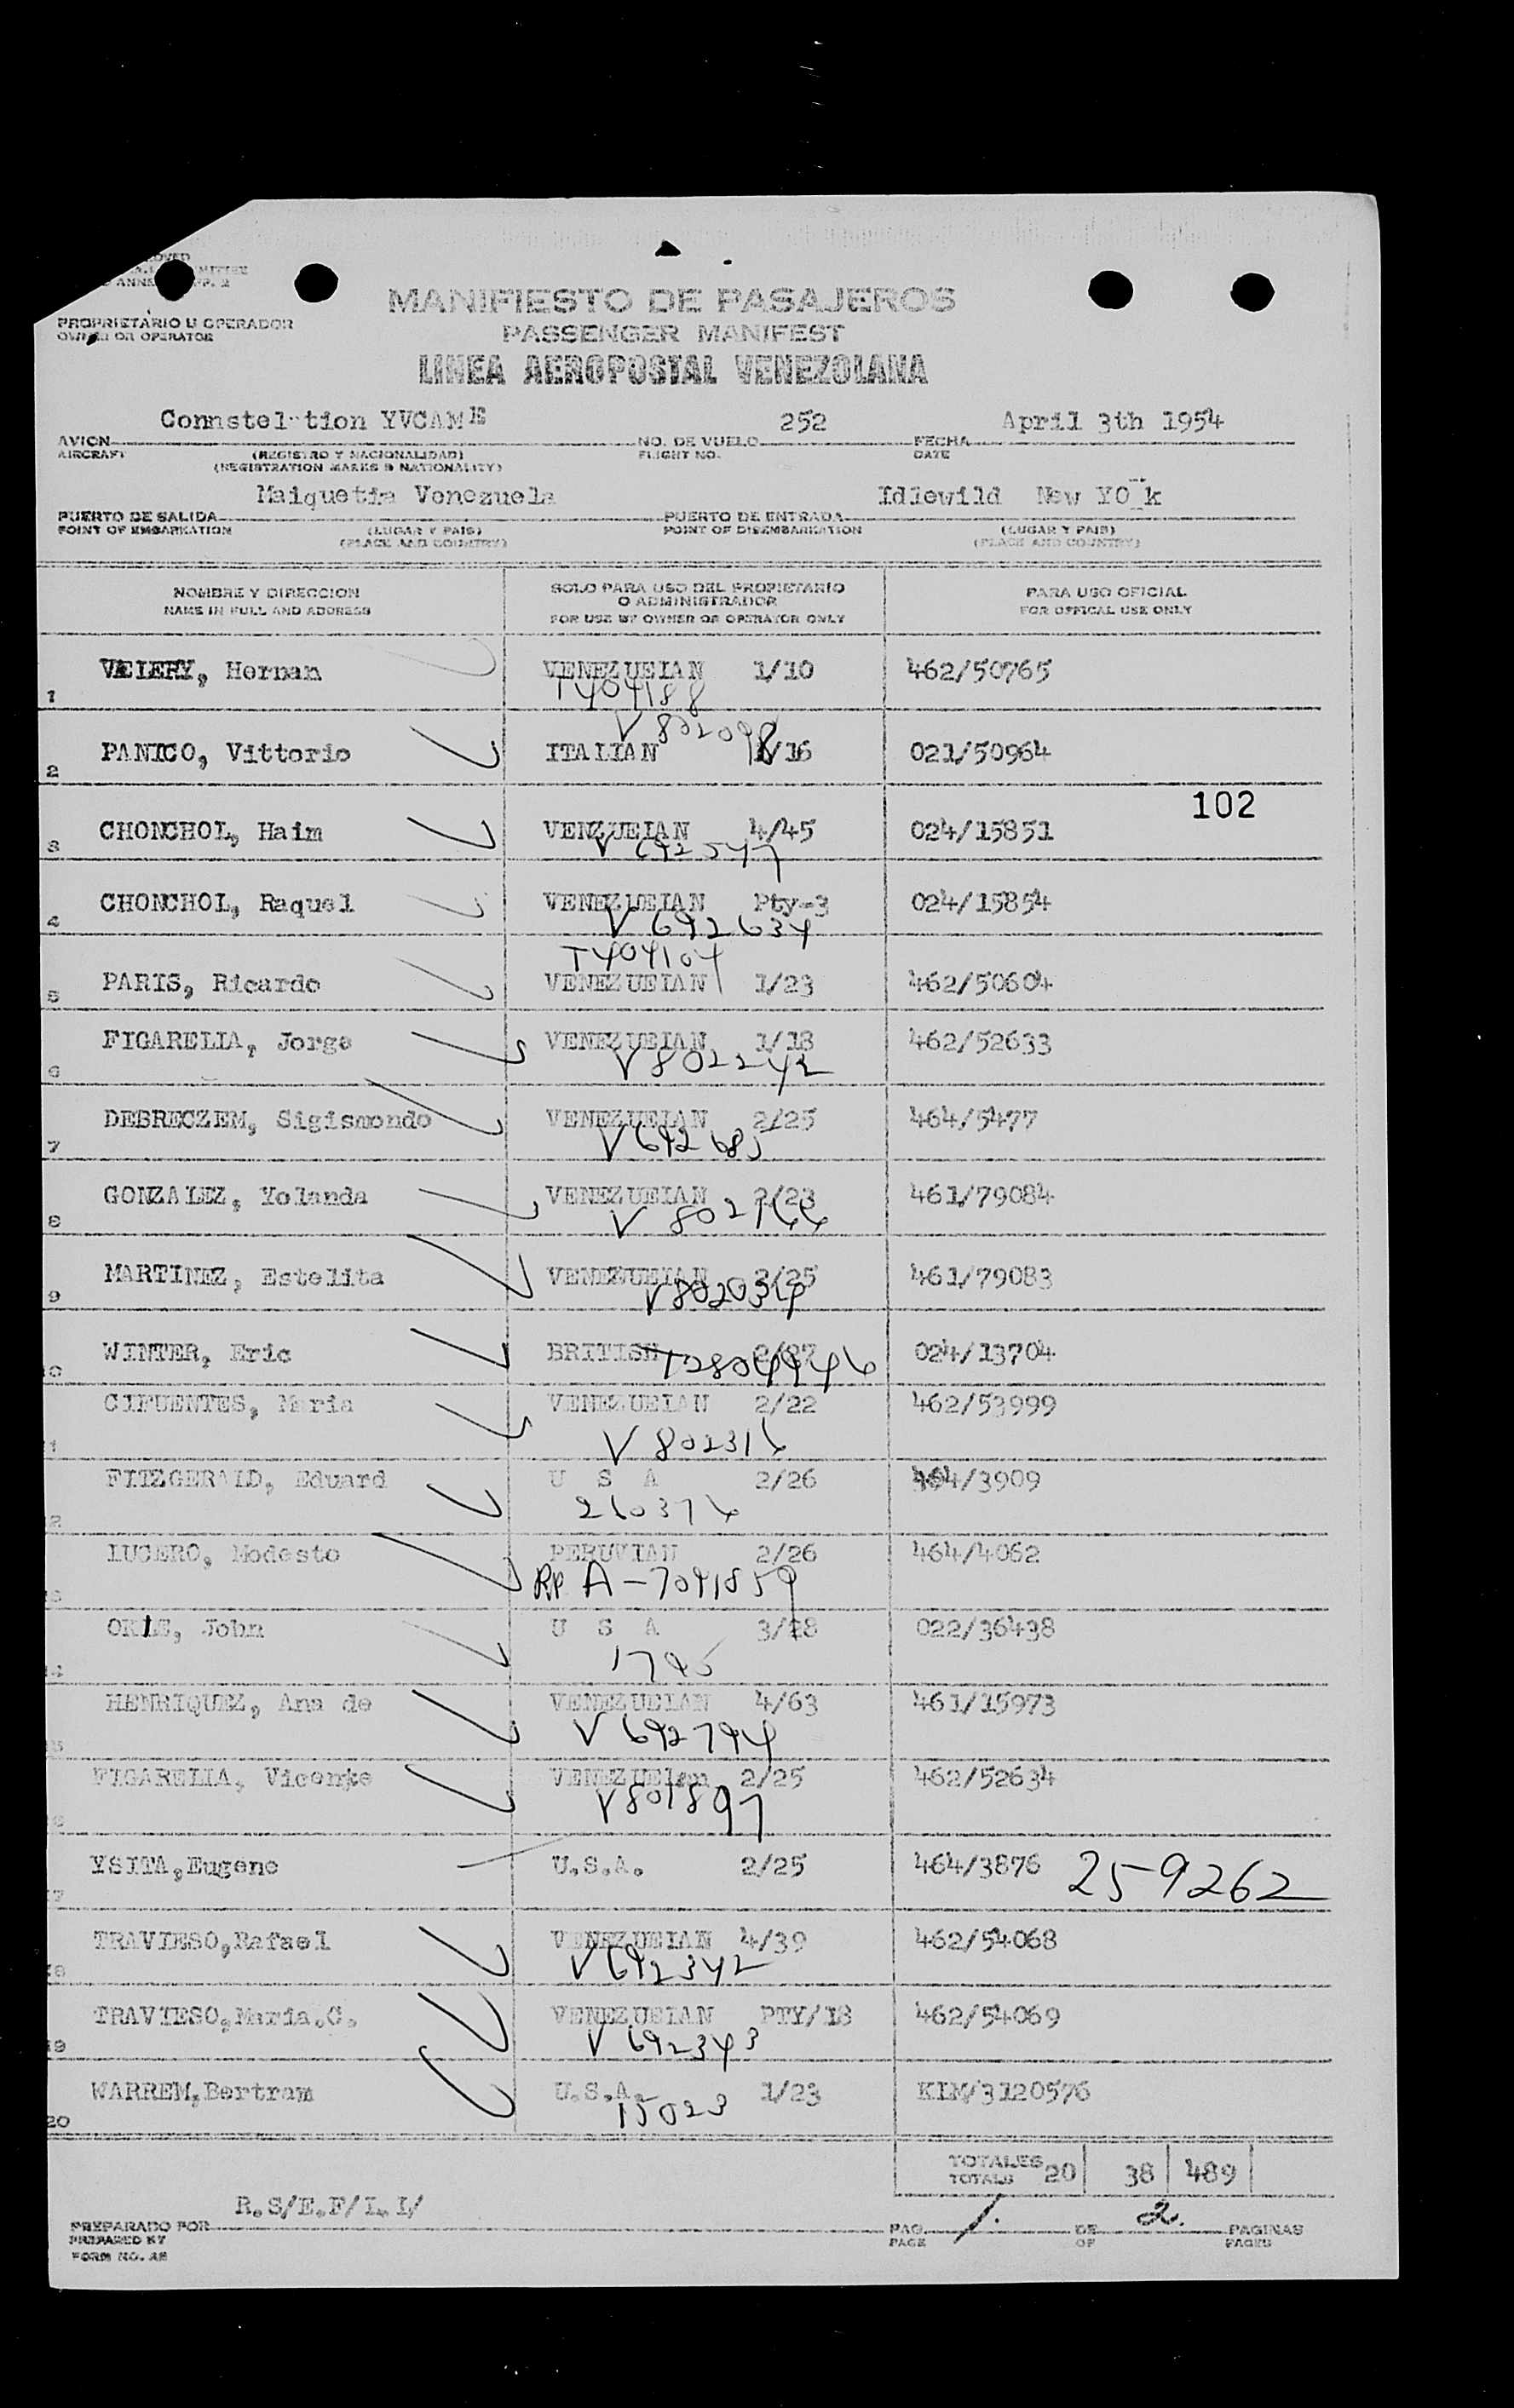 MANIFIESTO DE PASAJEROS
PASSENGER MANIFEST
PROPRIETARIO U OPERADOR
OWNER OR OPERATOR
LINEA AEROPOSTAL VENEZOLANA
Connstel tion YVCAME 252 April 3th 1954
AVION NO. DE VUELO FECHA
AIRCRAFT (REGISTRO Y NACIONALIDAD) FLIGHT NO. DATE
(REGISTRATION MARKS & NATIONALITY)
Maiquetia Venezuela Idlewild New YO k
PUERTO DE SALIDA PUERTO DE ENTRADA
POINT OF EMBARKATION (LUGAR Y PAIS) POINT OF DISEMBARKATION (LUGAR Y PAIS)
(PLACE AND COUNTRY) (PLACE AND COUNTRY)
NOMBRE Y DIRECCION SOLO PARA USO DEL PROPIETARIO PARA USO OFICIAL
O ADMINISTRADOR
NAME IN FULL AND ADDRESS FOR USE BY OWNER OR OPERATOR ONLY FOR OFFICAL USE ONLY
Hernan VENEZUEIAN 1/10 462/50765
1 T404188
V 802098
2 PANICO, Vittorio ITALIAN /16 021/50964
102
3 CHONCHOL, Haim VENZUEIAN 4/45 024/15851
V 692547
4 CHONCHOL, Raquel VENEZUEIAN Pty-3 024/15854
V 692634
T404104
5 PARIS, Ricardo VENEZUEIAN 1/23 462/50604
6 FIGARELIA, Jorge VENEZUEIAN 1/18 462/52633
V 802242
7 DEBRECZEM, Sigismondo VENEZUEIAN 2/25 464/5477
V 692685
8 GONZALEZ, Yolanda VENEZUEIAN 2/23 461/79084
V 802166
9 MARTINEZ, Estelita VENEZUEIAN 2/25 461/79083
10 WINTER, Eric BRITISH 2/27 024/13704
CIFUENTES, Maria VENEZUEIAN 2/22 462/53999
V 802316
FITZGERAID, Eduard U S A 2/26 /3909
260376
LUCERO, Modesto PERUVIAN 2/26 464/4062
A-7091859
John U S A 3/28 022/36438
1795
HENRIQUEZ, Ana de VENEZUEIAN 4/63 461/15973
V 692794
FIGARELIA, Vicente VENEZUElan 2/25 462/52634
V801897
YSITA,Eugene U.S.A. 2/25 464/3876 259262
TRAVIESO,Rafael VENEZUEIAN 4/39 462/54068
V692342
TRAVIESO,Maria.C. VENEZUEIAN PTY/18 462/54069
V 692343
WARREM,Bertram U.S.A. 1/23 KIM/3120576
20 15023
TOTALES
TOTALS 20 38 489
R.S/E.F/L.L/
PREPARADO POR PAG. 1. DE 2. PAGINAS
PREPARED BY PAGE OF PAGES
FORM NO.